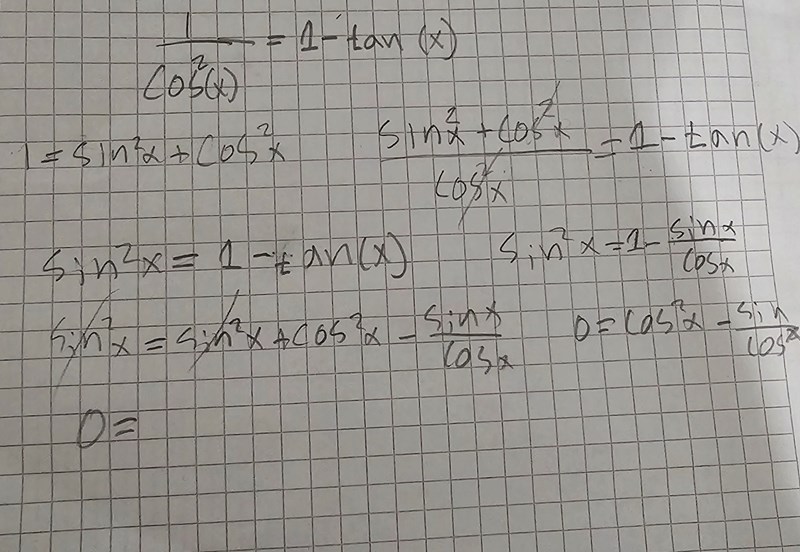 1/cos²(x) = 1 - tan(x)
1 = sin²x + cos²x    (sin²x + cos²x)/cos²x = 1 - tan(x)
sin²x = 1 - tan(x)    sin²x = 1 - sinx/cosx
sin²x = sin²x + cos²x - sinx/cosx    0 = cos²x - sin/cosx
0 =